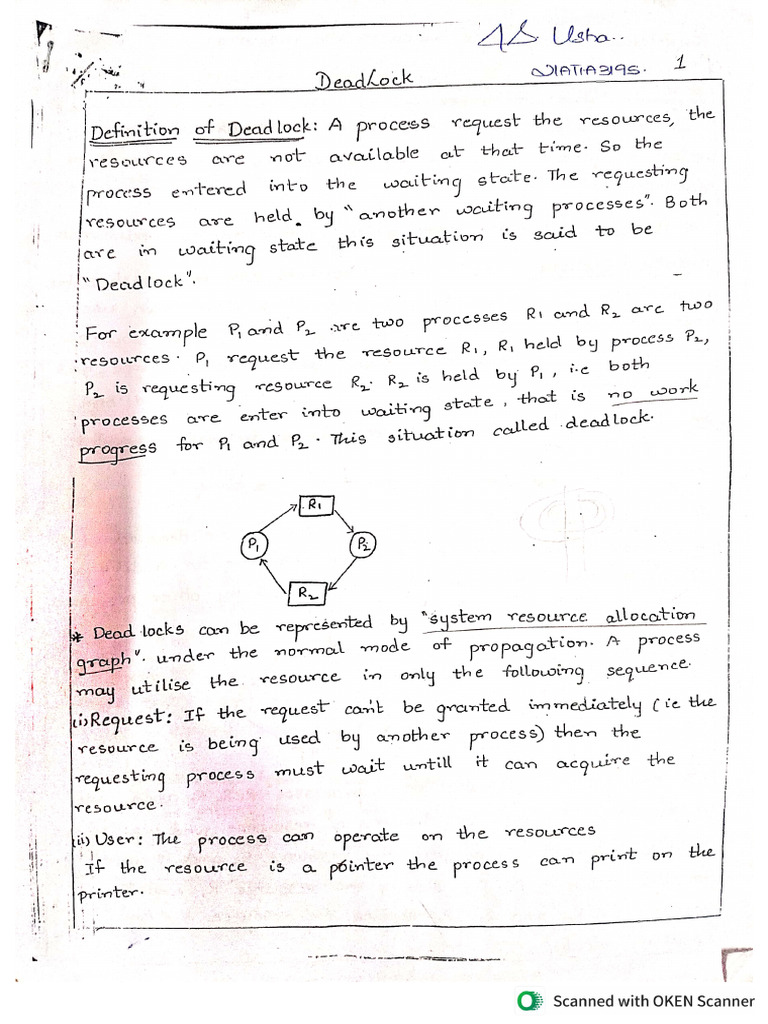 Usha..
1
DeadLock
Definition of Deadlock: A process request the resources, the
resources are not available at that time. So the
process entered into the waiting state. The requesting
resources are held by "another waiting processes". Both
are in waiting state this situation is said to be
"Deadlock".
For example P1 and P2 are two processes R1 and R2 are two
resources. P1 request the resource R1, R1 held by process P2,
P2 is requesting resource R2. R2 is held by P1, i.e both
processes are enter into waiting state, that is no work
progress for P1 and P2. This situation called deadlock.
R1
P1 P2
R2
* Dead locks can be represented by "system resource allocation
graph". under the normal mode of propagation. A process
may utilise the resource in only the following sequence.
(i) Request: If the request can't be granted immediately (ie the
resource is being used by another process) then the
requesting process must wait untill it can acquire the
resource.
(ii) User: The process can operate on the resources
If the resource is a pointer the process can print on the
printer.
Scanned with OKEN Scanner